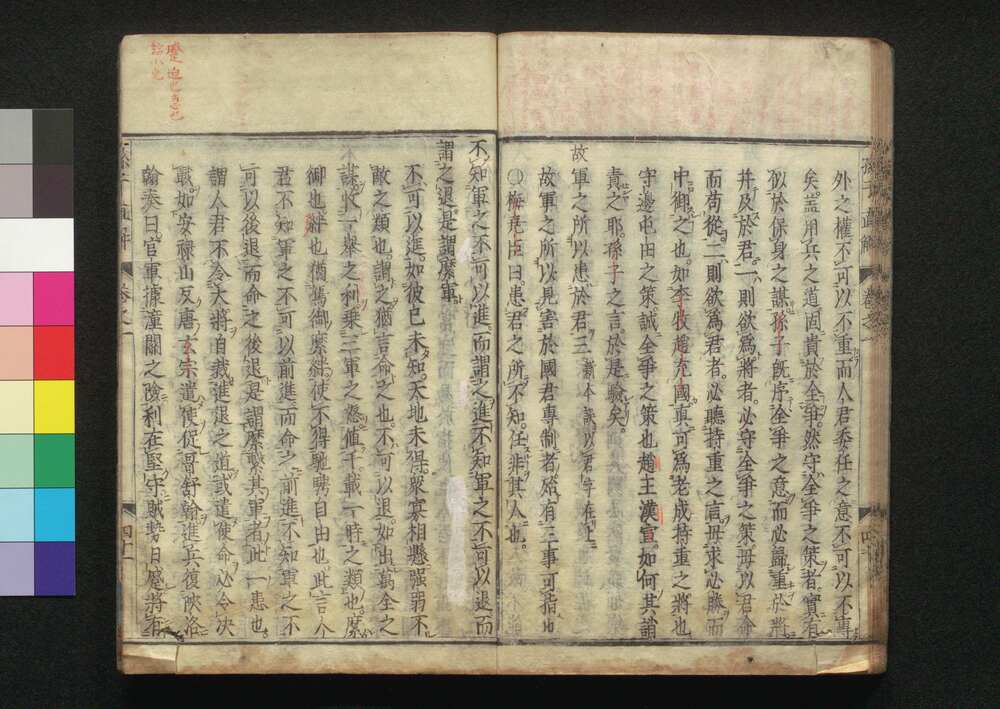 外之權不可以不重而人君委任之意不可以不專
矣。蓋用兵之道固貴於全爭。然守全爭之策者實有
似於保身之謀孫子既序全爭之意而必歸重於將
并及於君一則欲爲將者。必守全爭之策毋以君命
而苟從。二則欲爲君者。必聽持重之言毋求必勝而
中御之也。如李牧趙充國真可爲老成持重之將也
守邊屯田之策誠全爭之策也趙主漢宣。如何其誚
責之耶孫子之言於是驗矣。
故軍之所以患於君三
舊本誤以君字在上
故軍之所以見害於國君專制者有三事可指也
○梅堯臣曰患君之所不知。任非其人也。
不知軍之不可以進而謂之進不知軍之不可以退而
謂之退是謂縻軍
不可以進。如彼已未知天地未得衆寡相懸强弱不
敵之類也。謂之猶言命之也。不可以退。如出萬全之
謀收一舉之利乘三軍之怒值千載一時之類也。縻
御也絆也猶羈御縻絆使不得馳騁自由也此言人
君不知軍之不可以前進而命之前進不知軍之不
可以後退而命之後退是謂縻繫其軍者此一患也
謂人君不令大將自裁進退之道或遣使命必令决
戰如安禄山反唐玄宗遣使促哥舒翰進兵復陝洛
翰奏曰官軍據潼關之險利在堅守賊勢日蹙將有
孫子直解
卷之一
四十一
蹙迫也